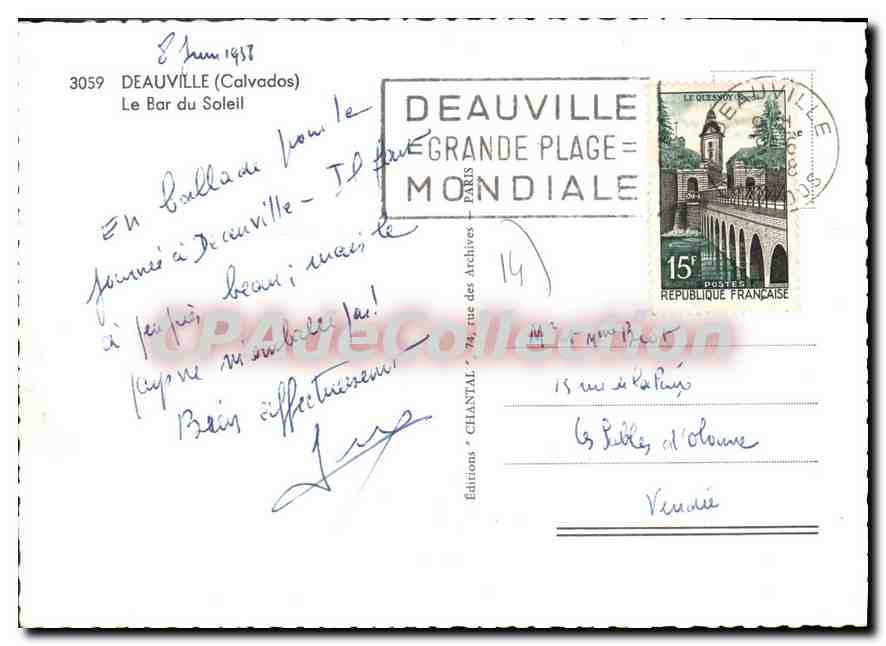 8 Juin 1958
3059 DEAUVILLE (Calvados)
Le Bar du Soleil
En ballade pour la
journée à Deauville - Il fait
à peu près beau; mais le
pays ne m'emballe pas!
Bien affectueusement
DEAUVILLE
=GRANDE PLAGE=
MONDIALE
LE QUESNOY
15F
POSTES
REPUBLIQUE FRANÇAISE
DEAUVILLE
CALVADOS
14
Éditions "CHANTAL" 74, rue des Archives - PARIS
CPAdeCollection
Mr & Mme
15 rue de la Paix
Les Sables d'Olonne
Vendée